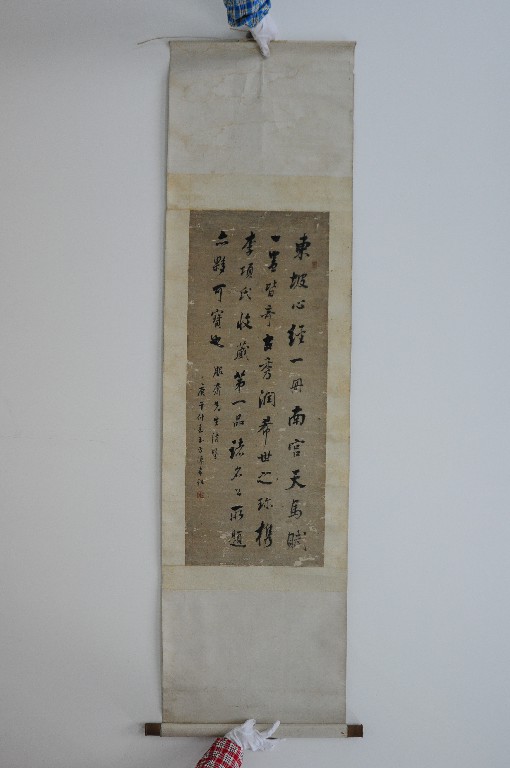 東坡心經一冊南宮天馬賦
一卷皆奇古秀潤希世之珍檇
李項氏收藏第一品諸名公所題
亦夥可寶也
先生